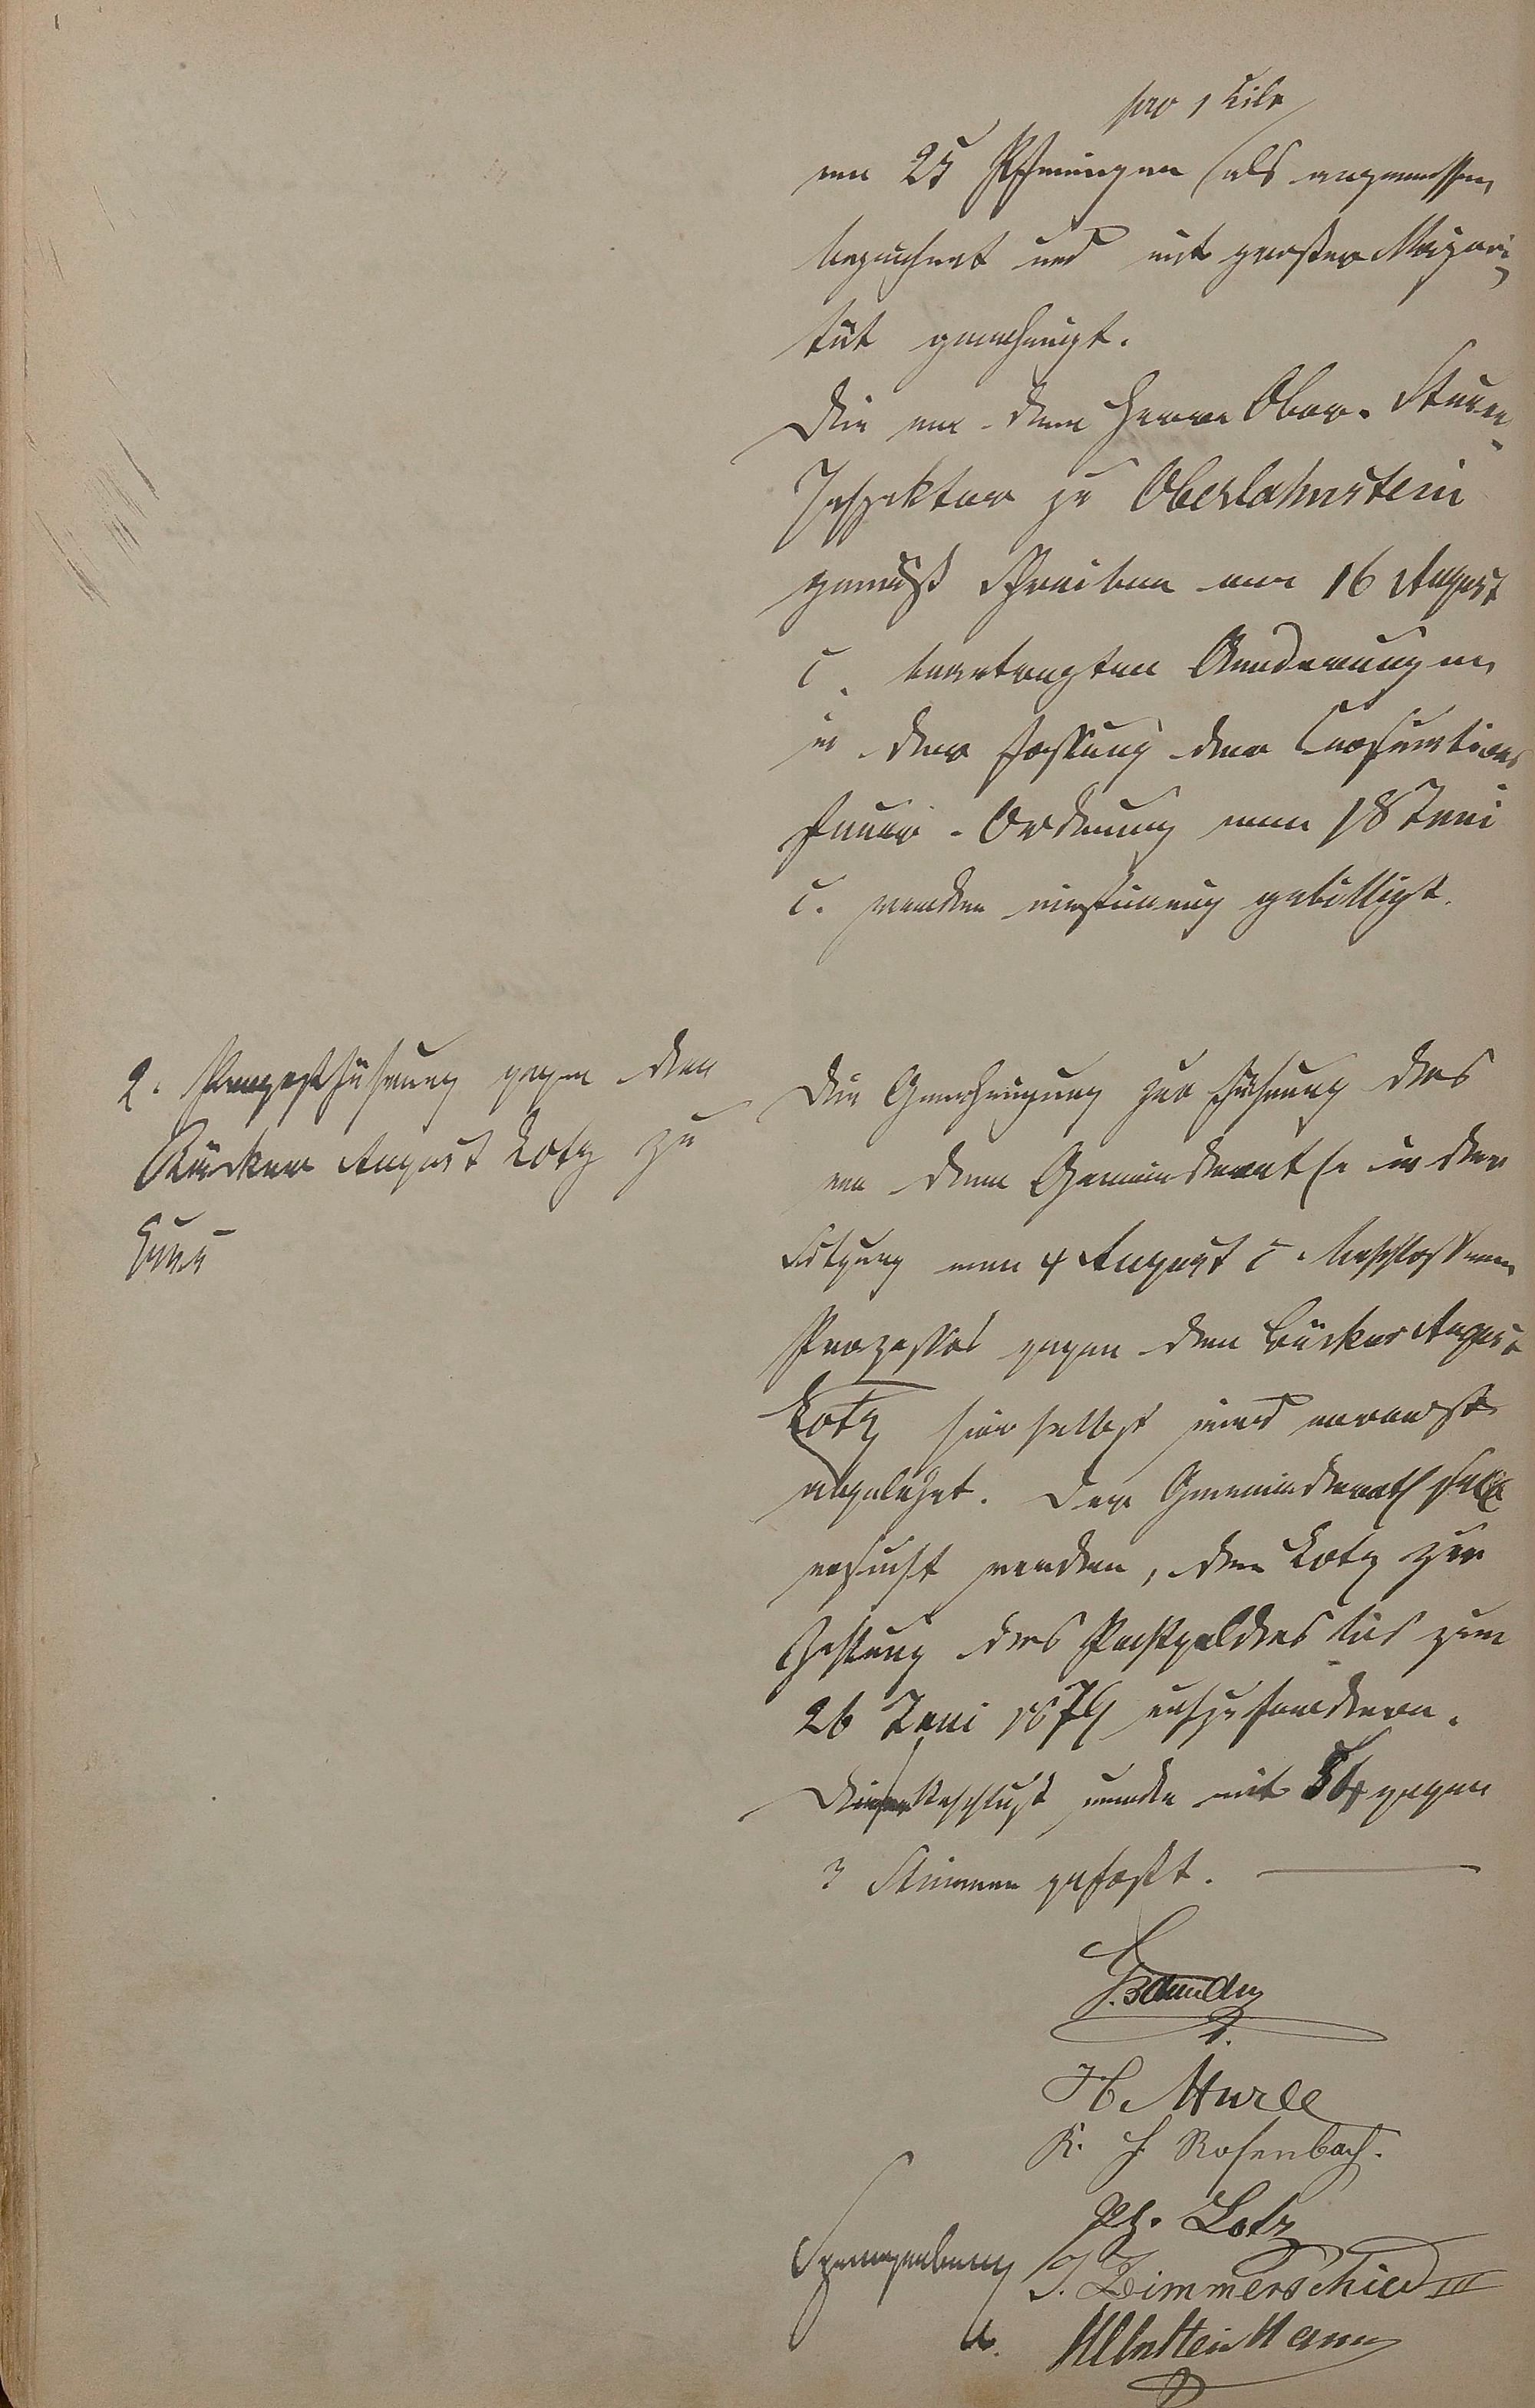 pro 1 Kilo
von 25 Pfenningen als angemessen
bezeichnet und mit großer Majori-
tät genehmigt.
Die von dem Herrn Ober-Steuer-
Inspektor zu Oberlahnstein
gemäß Schreiben vom 16 August
c. beantragten Aenderungen
in der Fassung der Consumtions
steuer-Ordnung vom 18 Juni
c. werden einstimmig gebilligt.
2. Prozeßführung gegen den
Bäcker August Lotz zu
Ems
Die Genehmigung zur Führung des
von dem Gemeinderathe in der
Sitzung vom 4 August c. beschlossenen
Prozesses gegen den Bäcker August
Lotz hierselbst wird vorerst
abgelehnt. Der Gemeinderath soll
ersucht werden, den Lotz zur
Zahlung des Pachtgeldes bis zum
26 Juni 1879 aufzufordern.
Dieser Beschluß wurde mit 34 gegen
3 Stimmen gefaßt.
H.
K. H. Rosenbach.
Ph. Lotz
Spangenberg
J. Zimmerschied III